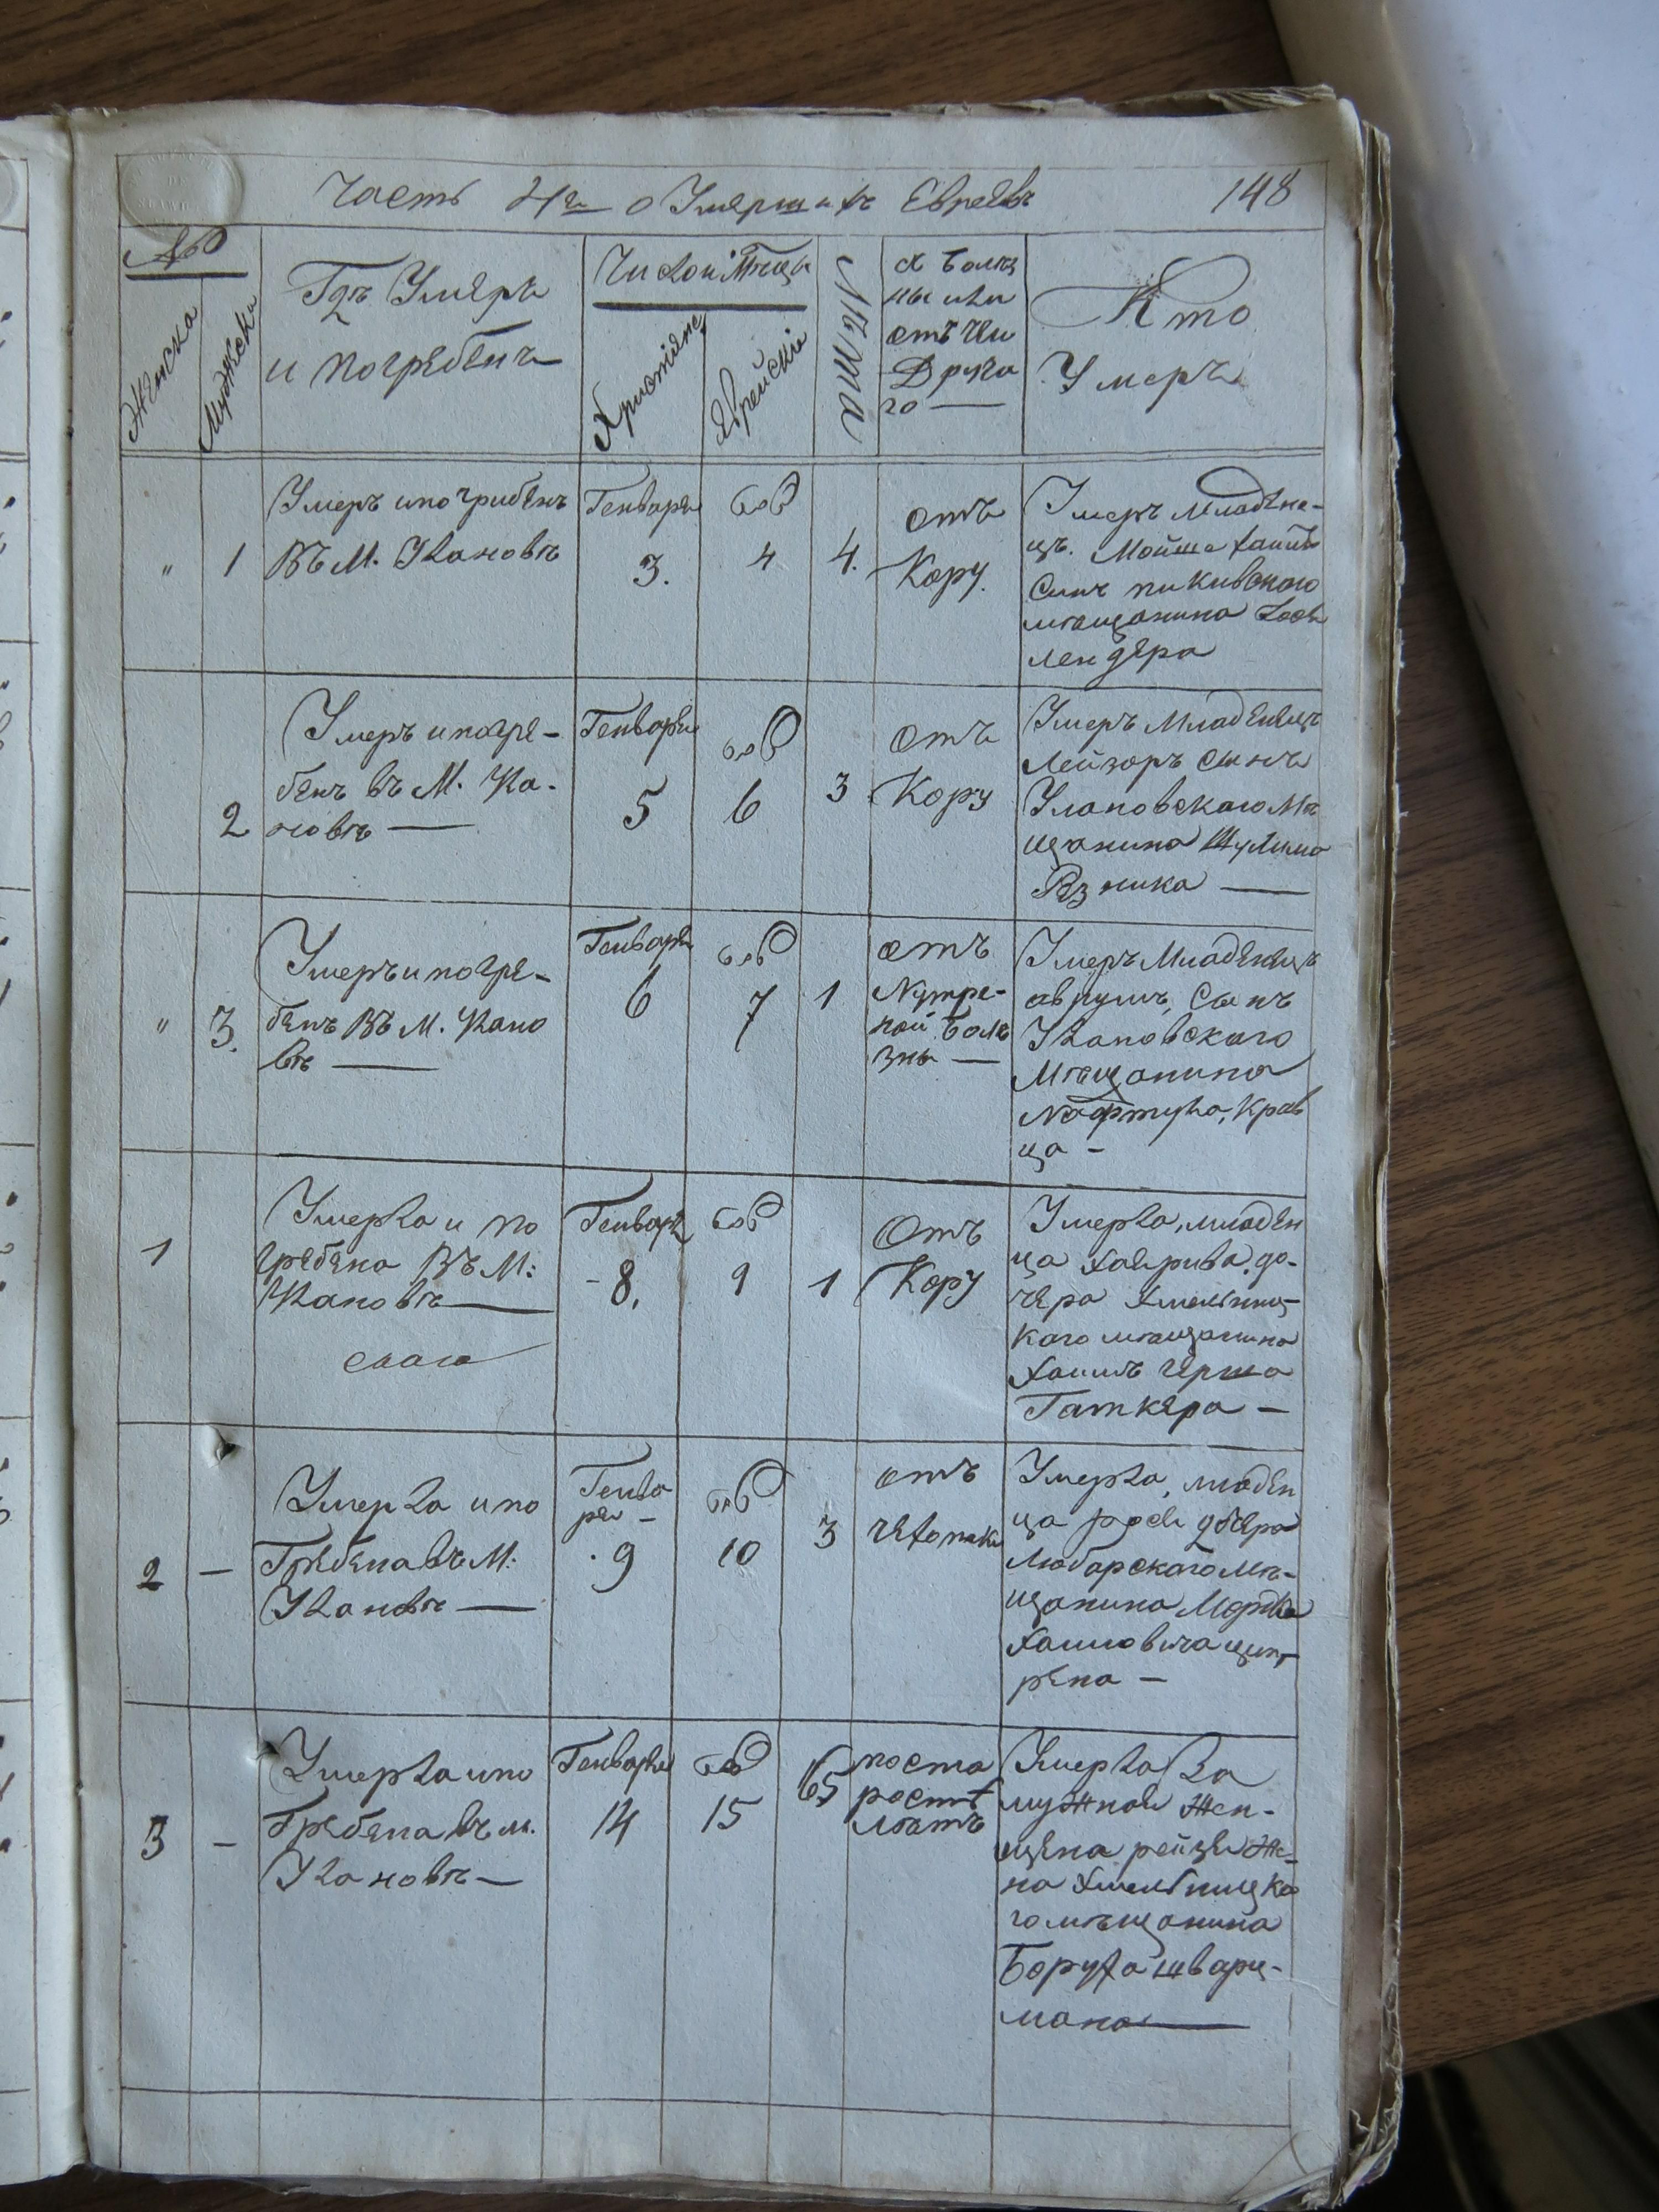 Часть 4я о Умершихъ Евреевъ
148
№
Женска
Мужеска
Гдѣ Умеръ
и погребенъ
Число и Мѣсяцъ
Христіянс
Еврейскіе
Лѣта
Болѣз
ны или
отъ чего
Друга
го —
Кто
Умеръ
"
1
Умеръ и погрибенъ
Въ М. Улановѣ
Генваря
3.
4
4.
отъ
Кору.
Умеръ Младене-
цъ. Мойше Хаимъ
Сынъ пикивского
мѣщанина
лендера
2
Умеръ и погре-
бенъ въ М. Ула-
новѣ —
Генваря
5
6
3
отъ
Кору
Умеръ Младенецъ
Лейзоръ сынъ
Улановскаго Мѣ
щанина Шулима
Резника —
"
3.
Умеръ и погре-
бенъ Въ М. Улано
вѣ —
Генваря
6
7
1
отъ
Нутре-
ной Болѣ
зны —
Умеръ Младенецъ
аврумъ, Сынъ
Улановскаго
Мѣщанина
Нафтула, Крав
ца -
1
Умерла и по
гребена Въ М:
Улановѣ —
Генваря
- 8.
9
1
Отъ
Кору
Умерла, младен
ца Хаерива, до-
чера Хмельниц-
каго мѣщанина
Хаимъ Герша
Гаткера —
2
—
Умерла и по
Гребена въ М:
Улановѣ —
Генва
ря -
9
10
3
отъ
чехотки
Умерла, младен
ца
Любарскаго Мѣ-
щанина Мордка
Хаимовича Цит-
рена —
3
—
Умерла и по
Гребена въ м.
Улановѣ —
Генваря
14
15
65
по ста
рости
лѣтъ
Умерла За
мужной Жен-
щена рейзя Же-
на Хмельницка
го мѣщанина
Боруха шварц-
мана —